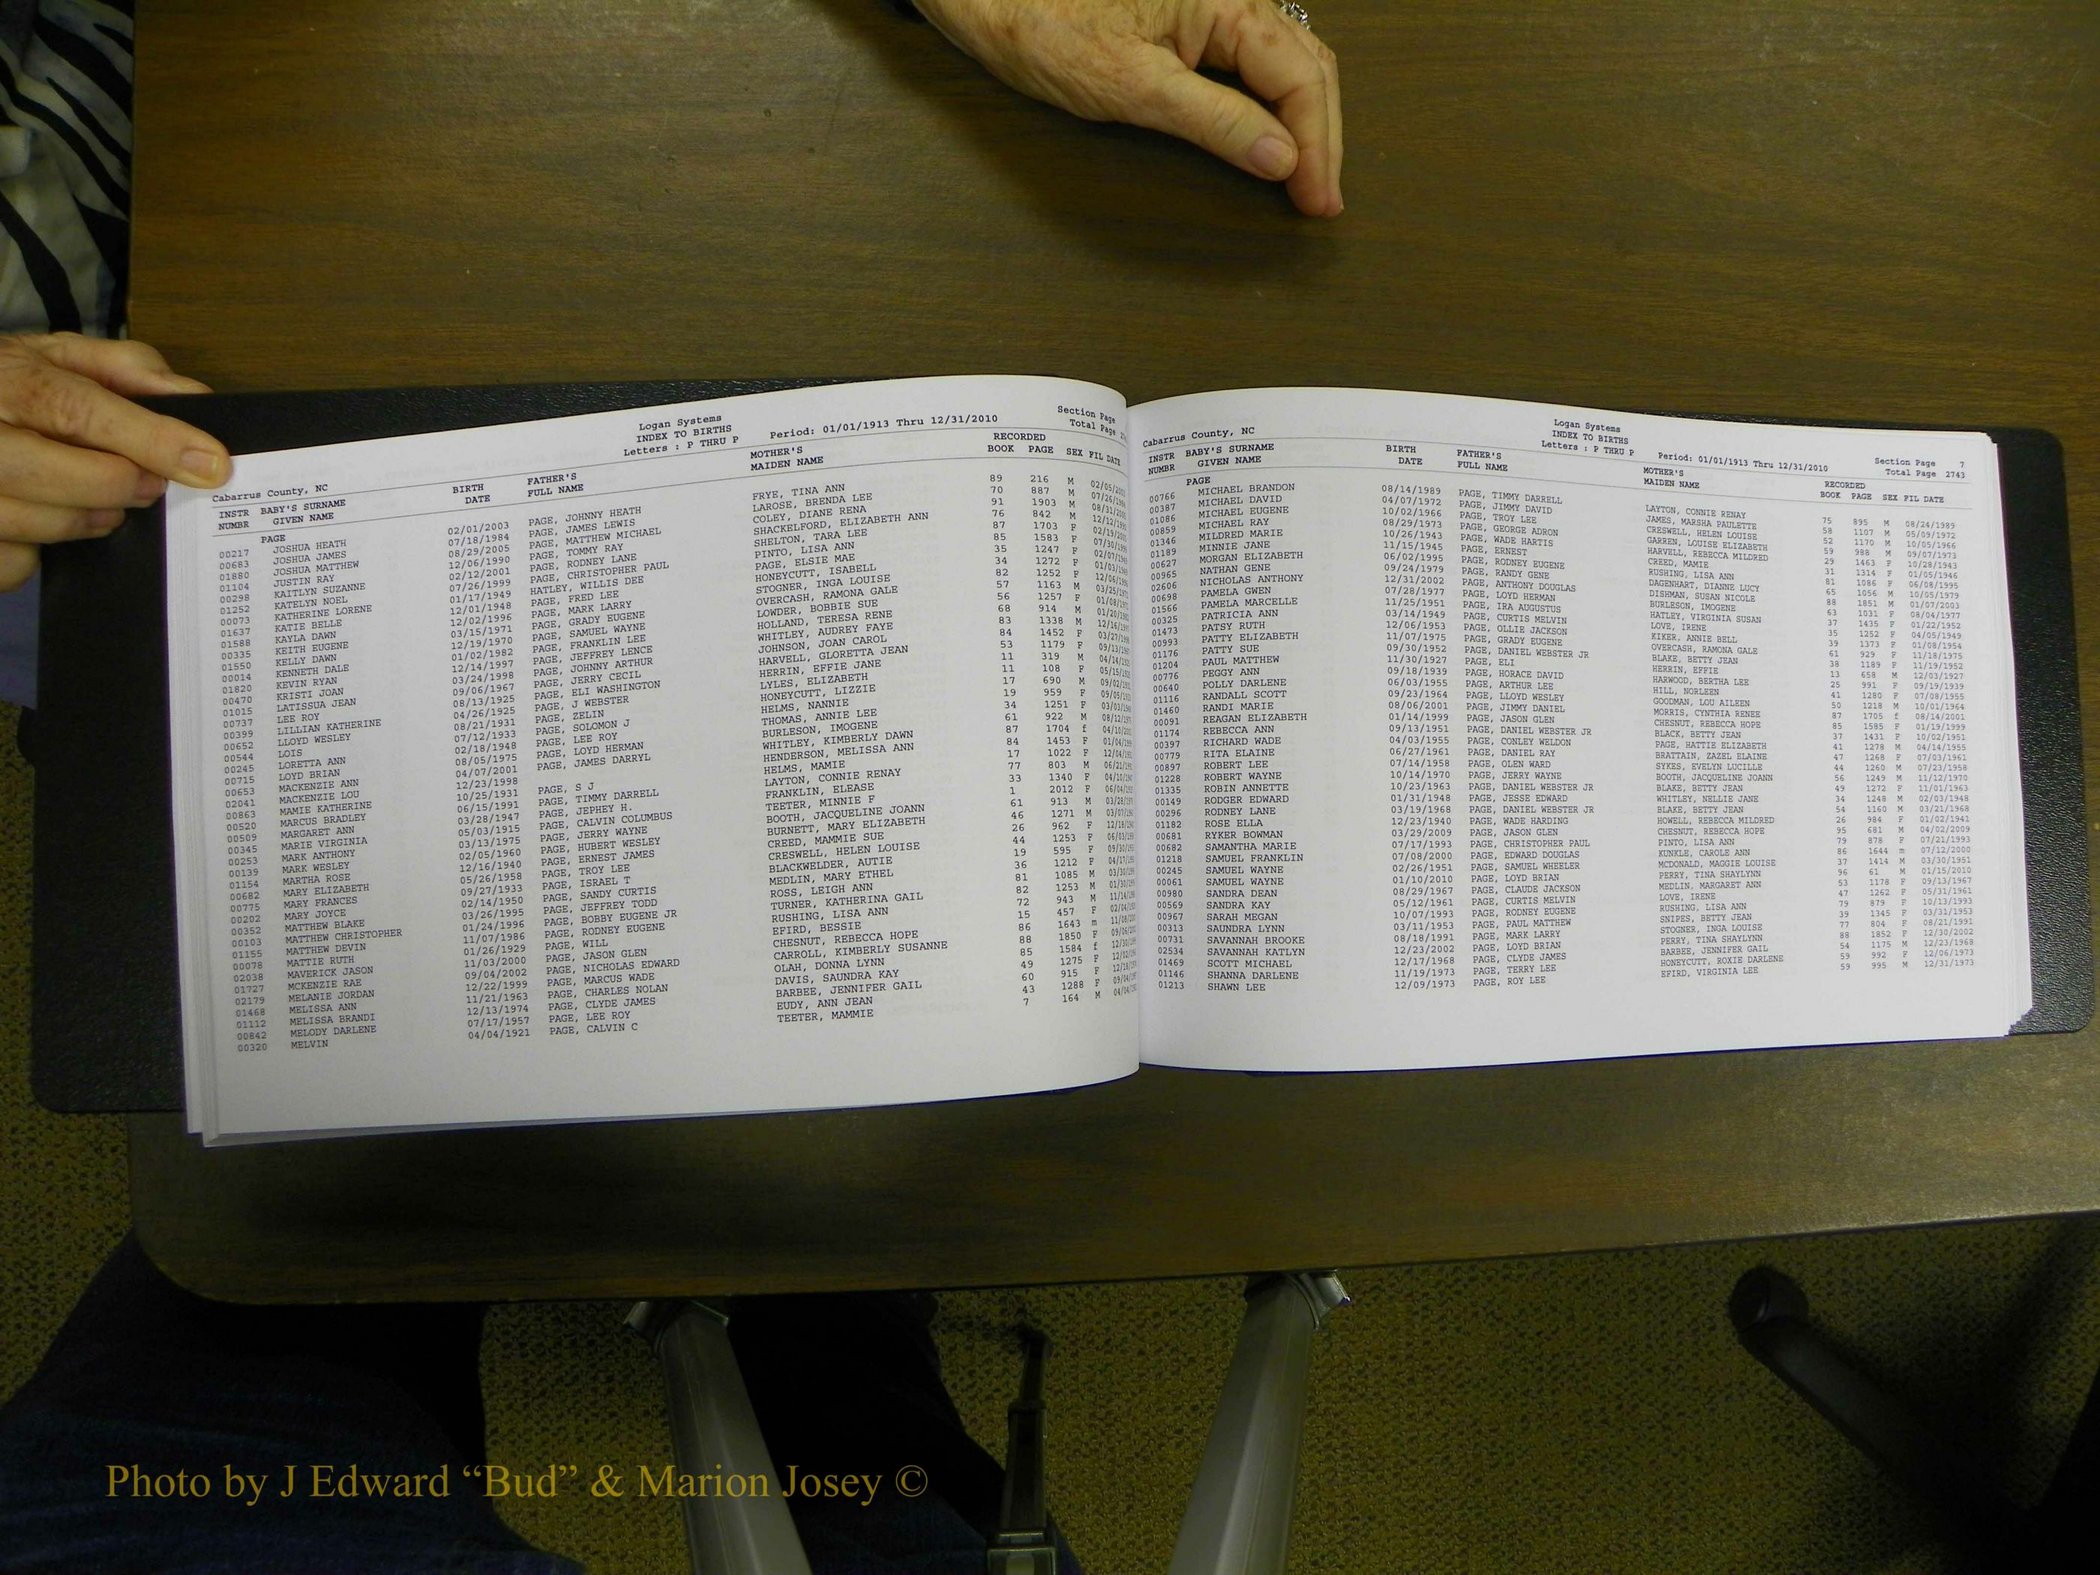 Logan Systems
INDEX TO BIRTHS
Letters : P THRU P Period: 01/01/1913 Thru 12/31/2010
Section Page
Total Page
Cabarrus County, NC
INSTR NUMBR BABY'S SURNAME GIVEN NAME BIRTH DATE FATHER'S FULL NAME MOTHER'S MAIDEN NAME RECORDED BOOK PAGE SEX FIL DATE
PAGE
00217 JOSHUA HEATH 02/01/2003 PAGE, JOHNNY HEATH FRYE, TINA ANN 89 216 M
00683 JOSHUA JAMES 07/18/1984 PAGE, JAMES LEWIS LAROSE, BRENDA LEE 70 887 M
01880 JOSHUA MATTHEW 08/29/2005 PAGE, MATTHEW MICHAEL COLEY, DIANE RENA 91 1903 M
01104 JUSTIN RAY 12/06/1990 PAGE, TOMMY RAY SHACKELFORD, ELIZABETH ANN 76 842 M
00298 KAITLYN SUZANNE 02/12/2001 PAGE, RODNEY LANE SHELTON, TARA LEE 87 1703 F
01252 KATELYN NOEL 07/26/1999 PAGE, CHRISTOPHER PAUL PINTO, LISA ANN 85 1583 F
00073 KATHERINE LORENE 01/17/1949 HATLEY, WILLIS DEE PAGE, ELSIE MAE 35 1247 F
01637 KATIE BELLE 12/01/1948 PAGE, FRED LEE HONEYCUTT, ISABELL 34 1272 F
01588 KAYLA DAWN 12/02/1996 PAGE, MARK LARRY STOGNER, INGA LOUISE 82 1252 F
00335 KEITH EUGENE 03/15/1971 PAGE, GRADY EUGENE OVERCASH, RAMONA GALE 57 1163 M
01550 KELLY DAWN 12/19/1970 PAGE, SAMUEL WAYNE LOWDER, BOBBIE SUE 56 1257 F
00014 KENNETH DALE 01/02/1982 PAGE, FRANKLIN LEE HOLLAND, TERESA RENE 68 914 M
01820 KEVIN RYAN 12/14/1997 PAGE, JEFFREY LENCE WHITLEY, AUDREY FAYE 83 1338 M
00470 KRISTI JOAN 03/24/1998 PAGE, JOHNNY ARTHUR JOHNSON, JOAN CAROL 84 1452 F
01015 LATISSUA JEAN 09/06/1967 PAGE, JERRY CECIL HARVELL, GLORETTA JEAN 53 1179 F
00737 LEE ROY 08/13/1925 PAGE, ELI WASHINGTON HERRIN, EFFIE JANE 11 319 M
00399 LILLIAN KATHERINE 04/26/1925 PAGE, J WEBSTER LYLES, ELIZABETH 11 108 F
00652 LLOYD WESLEY 08/21/1931 PAGE, ZELIN HONEYCUTT, LIZZIE 17 690 M
00544 LOIS 07/12/1933 PAGE, SOLOMON J HELMS, NANNIE 19 959 F
00245 LORETTA ANN 02/18/1948 PAGE, LEE ROY THOMAS, ANNIE LEE 34 1251 F
00715 LOYD BRIAN 08/05/1975 PAGE, LOYD HERMAN BURLESON, IMOGENE 61 922 M
00653 MACKENZIE ANN 04/07/2001 PAGE, JAMES DARRYL WHITLEY, KIMBERLY DAWN 87 1704 f
02041 MACKENZIE LOU 12/23/1998 HENDERSON, MELISSA ANN 84 1453 F
00863 MAMIE KATHERINE 10/25/1931 PAGE, S J HELMS, MAMIE 17 1022 F
00520 MARCUS BRADLEY 06/15/1991 PAGE, TIMMY DARRELL LAYTON, CONNIE RENAY 77 803 M
00509 MARGARET ANN 03/28/1947 PAGE, JEPHEY H. FRANKLIN, ELEASE 33 1340 F
00345 MARIE VIRGINIA 05/03/1915 PAGE, CALVIN COLUMBUS TEETER, MINNIE F 1 2012 F
00253 MARK ANTHONY 03/13/1975 PAGE, JERRY WAYNE BOOTH, JACQUELINE JOANN 61 913 M
00139 MARK WESLEY 02/05/1960 PAGE, HUBERT WESLEY BURNETT, MARY ELIZABETH 46 1271 M
01154 MARTHA ROSE 12/16/1940 PAGE, ERNEST JAMES CREED, MAMMIE SUE 26 962 F
00682 MARY ELIZABETH 05/26/1958 PAGE, TROY LEE CRESWELL, HELEN LOUISE 44 1253 F
00775 MARY FRANCES 09/27/1933 PAGE, ISRAEL T BLACKWELDER, AUTIE 19 595 F
00202 MARY JOYCE 02/14/1950 PAGE, SANDY CURTIS MEDLIN, MARY ETHEL 36 1212 F
00352 MATTHEW BLAKE 03/26/1995 PAGE, JEFFREY TODD ROSS, LEIGH ANN 81 1085 M
00103 MATTHEW CHRISTOPHER 01/24/1996 PAGE, BOBBY EUGENE JR TURNER, KATHERINA GAIL 82 1253 M
01155 MATTHEW DEVIN 11/07/1986 PAGE, RODNEY EUGENE RUSHING, LISA ANN 72 943 M
00078 MATTIE RUTH 01/26/1929 PAGE, WILL EFIRD, BESSIE 15 457 F
02038 MAVERICK JASON 11/03/2000 PAGE, JASON GLEN CHESNUT, REBECCA HOPE 86 1643 m
01727 MCKENZIE RAE 09/04/2002 PAGE, NICHOLAS EDWARD CARROLL, KIMBERLY SUSANNE 88 1850 F
02179 MELANIE JORDAN 12/22/1999 PAGE, MARCUS WADE OLAH, DONNA LYNN 85 1584 f
01468 MELISSA ANN 11/21/1963 PAGE, CHARLES NOLAN DAVIS, SAUNDRA KAY 49 1275 F
01112 MELISSA BRANDI 12/13/1974 PAGE, CLYDE JAMES BARBEE, JENNIFER GAIL 60 915 F
00842 MELODY DARLENE 07/17/1957 PAGE, LEE ROY EUDY, ANN JEAN 43 1288 F
00320 MELVIN 04/04/1921 PAGE, CALVIN C TEETER, MAMMIE 7 164 M
Logan Systems
INDEX TO BIRTHS
Letters : P THRU P Period: 01/01/1913 Thru 12/31/2010
Section Page 7
Total Page 2743
Cabarrus County, NC
INSTR NUMBR BABY'S SURNAME GIVEN NAME BIRTH DATE FATHER'S FULL NAME MOTHER'S MAIDEN NAME RECORDED BOOK PAGE SEX FIL DATE
PAGE
00766 MICHAEL BRANDON 08/14/1989 PAGE, TIMMY DARRELL LAYTON, CONNIE RENAY 75 895 M 08/24/1989
00387 MICHAEL DAVID 04/07/1972 PAGE, JIMMY DAVID JAMES, MARSHA PAULETTE 58 1107 M 05/09/1972
01086 MICHAEL EUGENE 10/02/1966 PAGE, TROY LEE CRESWELL, HELEN LOUISE 52 1170 M 10/05/1966
00859 MICHAEL RAY 08/29/1973 PAGE, GEORGE ADRON GARREN, LOUISE ELIZABETH 59 988 M 09/07/1973
01346 MILDRED MARIE 10/26/1943 PAGE, WADE HARTIS HARVELL, REBECCA MILDRED 29 1463 F 10/28/1943
01189 MINNIE JANE 11/15/1945 PAGE, ERNEST CREED, MAMIE 31 1314 F 01/05/1946
00627 MORGAN ELIZABETH 06/02/1995 PAGE, RODNEY EUGENE RUSHING, LISA ANN 81 1086 F 06/08/1995
00965 NATHAN GENE 09/24/1979 PAGE, RANDY GENE DAGENHART, DIANNE LUCY 65 1056 M 10/05/1979
02606 NICHOLAS ANTHONY 12/31/2002 PAGE, ANTHONY DOUGLAS DISHMAN, SUSAN NICOLE 88 1851 M 01/07/2003
00698 PAMELA GWEN 07/28/1977 PAGE, LOYD HERMAN BURLESON, IMOGENE 63 1031 F 08/04/1977
01566 PAMELA MARCELLE 11/25/1951 PAGE, IRA AUGUSTUS HATLEY, VIRGINIA SUSAN 37 1435 F 01/22/1952
00325 PATRICIA ANN 03/14/1949 PAGE, CURTIS MELVIN LOVE, IRENE 35 1252 F 04/05/1949
01473 PATSY RUTH 12/06/1953 PAGE, OLLIE JACKSON KIKER, ANNIE BELL 39 1373 F 01/08/1954
00993 PATTY ELIZABETH 11/07/1975 PAGE, GRADY EUGENE OVERCASH, RAMONA GALE 61 929 F 11/18/1975
01176 PATTY SUE 09/30/1952 PAGE, DANIEL WEBSTER JR BLAKE, BETTY JEAN 38 1189 F 11/19/1952
01204 PAUL MATTHEW 11/30/1927 PAGE, ELI HERRIN, EFFIE 13 658 M 12/03/1927
00776 PEGGY ANN 09/18/1939 PAGE, HORACE DAVID HARWOOD, BERTHA LEE 25 991 F 09/19/1939
00640 POLLY DARLENE 06/03/1955 PAGE, ARTHUR LEE HILL, NORLEEN 41 1280 F 07/08/1955
01116 RANDALL SCOTT 09/23/1964 PAGE, LLOYD WESLEY GOODMAN, LOU AILEEN 50 1218 M 10/01/1964
01460 RANDI MARIE 08/06/2001 PAGE, JIMMY DANIEL MORRIS, CYNTHIA RENEE 87 1705 f 08/14/2001
00091 REAGAN ELIZABETH 01/14/1999 PAGE, JASON GLEN CHESNUT, REBECCA HOPE 85 1585 F 01/19/1999
01174 REBECCA ANN 09/13/1951 PAGE, DANIEL WEBSTER JR BLACK, BETTY JEAN 37 1431 F 10/02/1951
00397 RICHARD WADE 04/03/1955 PAGE, CONLEY WELDON PAGE, HATTIE ELIZABETH 41 1278 M 04/14/1955
00779 RITA ELAINE 06/27/1961 PAGE, DANIEL RAY BRATTAIN, ZAZEL ELAINE 47 1268 F 07/03/1961
00897 ROBERT LEE 07/14/1958 PAGE, OLEN WARD SYKES, EVELYN LUCILLE 44 1260 M 07/23/1958
01228 ROBERT WAYNE 10/14/1970 PAGE, JERRY WAYNE BOOTH, JACQUELINE JOANN 56 1249 M 11/12/1970
01335 ROBIN ANNETTE 10/23/1963 PAGE, DANIEL WEBSTER JR BLAKE, BETTY JEAN 49 1272 F 11/01/1963
00149 RODGER EDWARD 01/31/1948 PAGE, JESSE EDWARD WHITLEY, NELLIE JANE 34 1248 M 02/03/1948
00296 RODNEY LANE 03/19/1968 PAGE, DANIEL WEBSTER JR BLAKE, BETTY JEAN 54 1160 M 03/21/1968
01182 ROSE ELLA 12/23/1940 PAGE, WADE HARDING HOWELL, REBECCA MILDRED 26 984 F 01/02/1941
00681 RYKER BOWMAN 03/29/2009 PAGE, JASON GLEN CHESNUT, REBECCA HOPE 95 681 M 04/02/2009
00682 SAMANTHA MARIE 07/17/1993 PAGE, CHRISTOPHER PAUL PINTO, LISA ANN 79 878 F 07/21/1993
01218 SAMUEL FRANKLIN 07/08/2000 PAGE, EDWARD DOUGLAS KUNKLE, CAROLE ANN 86 1644 m 07/12/2000
00245 SAMUEL WAYNE 02/26/1951 PAGE, SAMUEL WHEELER MCDONALD, MAGGIE LOUISE 37 1414 M 03/30/1951
00061 SAMUEL WAYNE 01/10/2010 PAGE, LOYD BRIAN PERRY, TINA SHAYLYNN 96 61 M 01/15/2010
00980 SANDRA DEAN 08/29/1967 PAGE, CLAUDE JACKSON MEDLIN, MARGARET ANN 53 1178 F 09/13/1967
00569 SANDRA KAY 05/12/1961 PAGE, CURTIS MELVIN LOVE, IRENE 47 1262 F 05/31/1961
00967 SARAH MEGAN 10/07/1993 PAGE, RODNEY EUGENE RUSHING, LISA ANN 79 879 F 10/13/1993
00313 SAUNDRA LYNN 03/11/1953 PAGE, PAUL MATTHEW SNIPES, BETTY JEAN 39 1345 F 03/31/1953
00731 SAVANNAH BROOKE 08/18/1991 PAGE, MARK LARRY STOGNER, INGA LOUISE 77 804 F 08/21/1991
02534 SAVANNAH KATLYN 12/23/2002 PAGE, LOYD BRIAN PERRY, TINA SHAYLYNN 88 1852 F 12/30/2002
01469 SCOTT MICHAEL 12/17/1968 PAGE, CLYDE JAMES BARBEE, JENNIFER GAIL 54 1175 M 12/23/1968
01146 SHANNA DARLENE 11/19/1973 PAGE, TERRY LEE HONEYCUTT, ROXIE DARLENE 59 992 F 12/06/1973
01213 SHAWN LEE 12/09/1973 PAGE, ROY LEE EFIRD, VIRGINIA LEE 59 995 M 12/31/1973
Photo by J Edward “Bud” & Marion Josey ©